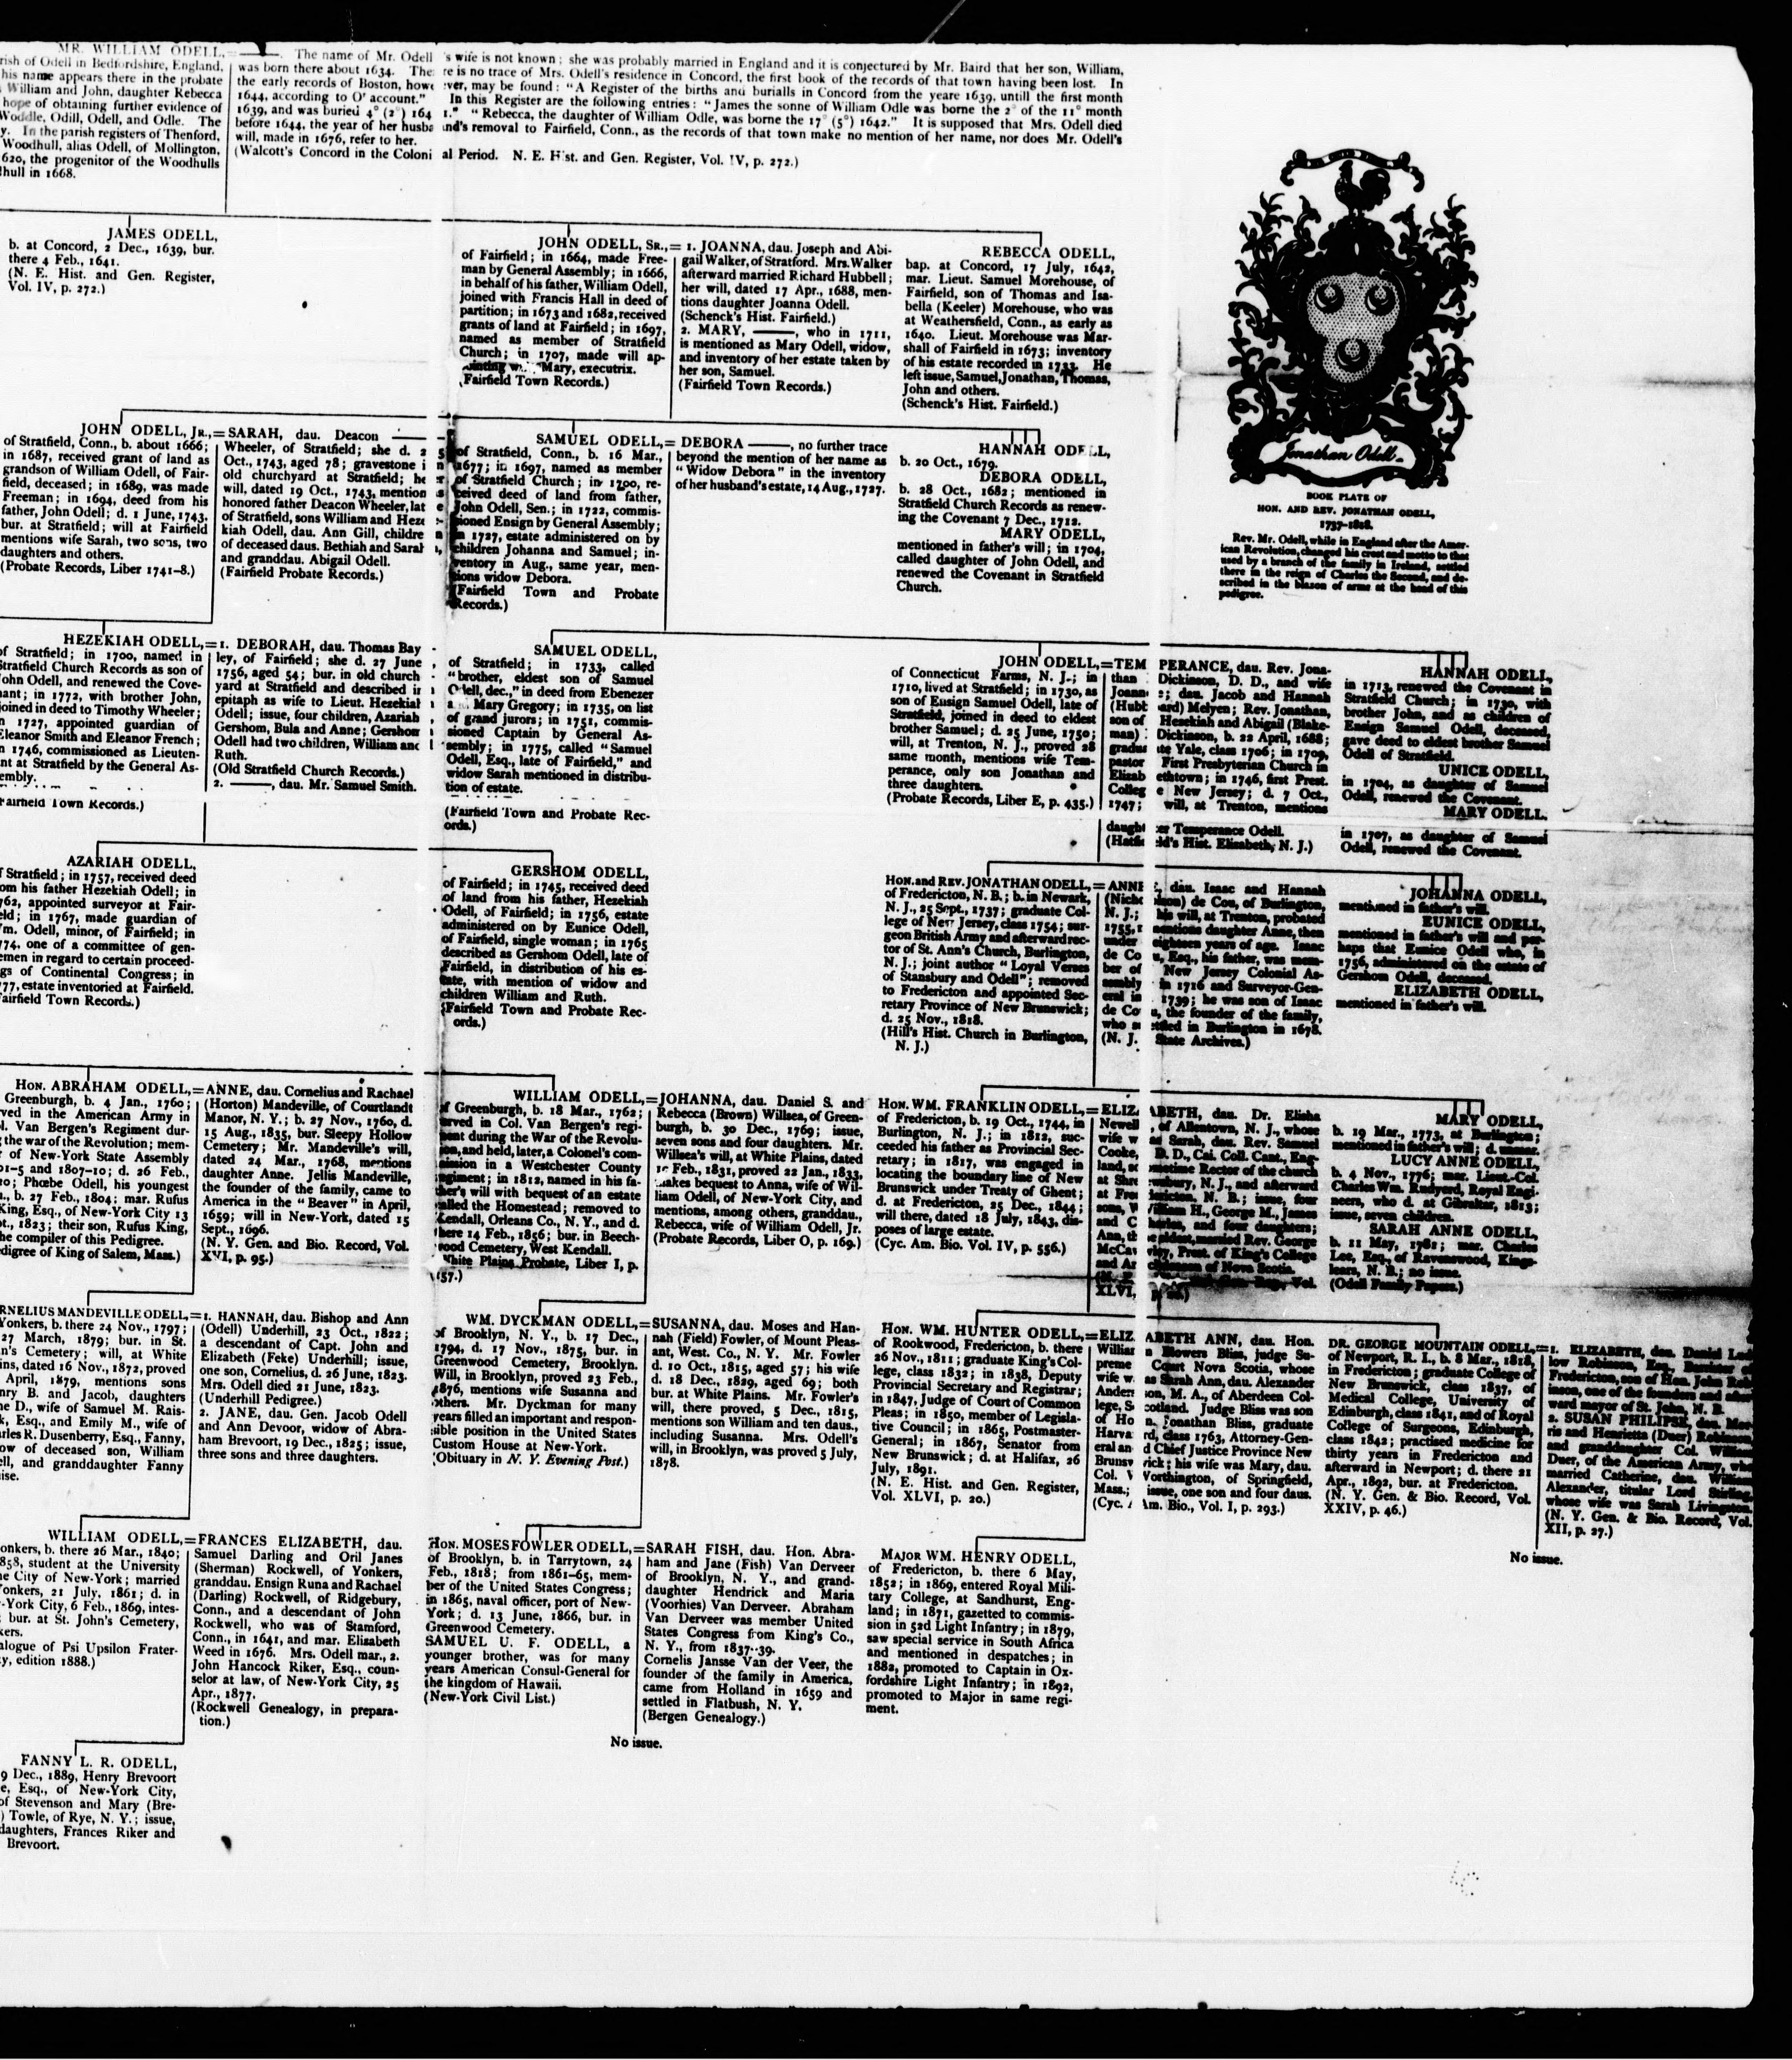 MR. WILLIAM ODELL,=
rish of Odell in Bedfordshire, England,
his name appears there in the probate
William and John, daughter Rebecca
hope of obtaining further evidence of
Woddle, Odill, Odell, and Odle. The
y. In the parish registers of Thenford,
Woodhull, alias Odell, of Mollington,
620, the progenitor of the Woodhulls
lhull in 1668.
——. The name of Mr. Odell 's wife is not known; she was probably married in England and it is conjectured by Mr. Baird that her son, William,
was born there about 1634. There is no trace of Mrs. Odell's residence in Concord, the first book of the records of that town having been lost. In
the early records of Boston, however, may be found: "A Register of the births and burialls in Concord from the yeare 1639, untill the first month
1644, according to O' account." In this Register are the following entries: "James the sonne of William Odle was borne the 2° of the 11° month
1639, and was buried 4° (2°) 1641." "Rebecca, the daughter of William Odle, was borne the 17° (5°) 1642." It is supposed that Mrs. Odell died
before 1644, the year of her husband's removal to Fairfield, Conn., as the records of that town make no mention of her name, nor does Mr. Odell's
will, made in 1676, refer to her.
(Walcott's Concord in the Colonial Period. N. E. Hist. and Gen. Register, Vol. IV, p. 272.)
JAMES ODELL,
b. at Concord, 2 Dec., 1639, bur.
there 4 Feb., 1641.
(N. E. Hist. and Gen. Register,
Vol. IV, p. 272.)
JOHN ODELL, SR.,=
of Fairfield; in 1664, made Free-
man by General Assembly; in 1666,
in behalf of his father, William Odell,
joined with Francis Hall in deed of
partition; in 1673 and 1682, received
grants of land at Fairfield; in 1697,
named as member of Stratfield
Church; in 1707, made will ap-
Mary, executrix.
(Fairfield Town Records.)
1. JOANNA, dau. Joseph and Abi-
gail Walker, of Stratford. Mrs. Walker
afterward married Richard Hubbell;
her will, dated 17 Apr., 1688, men-
tions daughter Joanna Odell.
(Schenck's Hist. Fairfield.)
2. MARY, ——, who in 1711,
is mentioned as Mary Odell, widow,
and inventory of her estate taken by
her son, Samuel.
(Fairfield Town Records.)
REBECCA ODELL,
bap. at Concord, 17 July, 1642,
mar. Lieut. Samuel Morehouse, of
Fairfield, son of Thomas and Isa-
bella (Keeler) Morehouse, who was
at Weathersfield, Conn., as early as
1640. Lieut. Morehouse was Mar-
shall of Fairfield in 1673; inventory
of his estate recorded in 1733. He
left issue, Samuel, Jonathan, Thomas,
John and others.
(Schenck's Hist. Fairfield.)
Jonathan Odell.
BOOK PLATE OF
HON. AND REV. JONATHAN ODELL,
1737-1818.
Rev. Mr. Odell, while in England after the Amer-
ican Revolution, changed his crest and motto to that
used by a branch of the family in Ireland, settled
there in the reign of Charles the Second, and de-
scribed in the blazon of arms at the head of this
pedigree.
JOHN ODELL, JR.,=
of Stratfield, Conn., b. about 1666;
in 1687, received grant of land as
grandson of William Odell, of Fair-
field, deceased; in 1689, was made
Freeman; in 1694, deed from his
father, John Odell; d. 1 June, 1743,
bur. at Stratfield; will at Fairfield
mentions wife Sarah, two sons, two
daughters and others.
(Probate Records, Liber 1741-8.)
SARAH, dau. Deacon ——
Wheeler, of Stratfield; she d. 25
Oct., 1743, aged 78; gravestone in
old churchyard at Stratfield; her
will, dated 19 Oct., 1743, mentions
honored father Deacon Wheeler, late
of Stratfield, sons William and Heze-
kiah Odell, dau. Ann Gill, children
of deceased daus. Bethiah and Sarah,
and granddau. Abigail Odell.
(Fairfield Probate Records.)
SAMUEL ODELL,=
of Stratfield, Conn., b. 16 Mar.,
1677; in 1697, named as member
of Stratfield Church; in 1700, re-
ceived deed of land from father,
John Odell, Sen.; in 1722, commis-
sioned Ensign by General Assembly;
in 1727, estate administered on by
children Johanna and Samuel; in-
ventory in Aug., same year, men-
tions widow Debora.
(Fairfield Town and Probate
Records.)
DEBORA ——, no further trace
beyond the mention of her name as
"Widow Debora" in the inventory
of her husband's estate, 14 Aug., 1727.
HANNAH ODELL,
b. 20 Oct., 1679.
DEBORA ODELL,
b. 28 Oct., 1682; mentioned in
Stratfield Church Records as renew-
ing the Covenant 7 Dec., 1712.
MARY ODELL,
mentioned in father's will; in 1704,
called daughter of John Odell, and
renewed the Covenant in Stratfield
Church.
HEZEKIAH ODELL,=
of Stratfield; in 1700, named in
Stratfield Church Records as son of
John Odell, and renewed the Cove-
nant; in 1772, with brother John,
joined in deed to Timothy Wheeler;
n 1727, appointed guardian of
Eleanor Smith and Eleanor French;
n 1746, commissioned as Lieuten-
nt at Stratfield by the General As-
embly.
Fairfield Town Records.)
1. DEBORAH, dau. Thomas Bay-
ley, of Fairfield; she d. 27 June,
1756, aged 54; bur. in old church
yard at Stratfield and described in
epitaph as wife to Lieut. Hezekiah
Odell; issue, four children, Azariah,
Gershom, Bula and Anne; Gershom
Odell had two children, William and
Ruth.
(Old Stratfield Church Records.)
2. ——, dau. Mr. Samuel Smith.
SAMUEL ODELL,
of Stratfield; in 1733, called
"brother, eldest son of Samuel
Odell, dec.," in deed from Ebenezer
Mary Gregory; in 1735, on list
of grand jurors; in 1751, commis-
sioned Captain by General As-
sembly; in 1775, called "Samuel
Odell, Esq., late of Fairfield," and
widow Sarah mentioned in distribu-
tion of estate.
(Fairfield Town and Probate Rec-
ords.)
JOHN ODELL,=
of Connecticut Farms, N. J.; in
1710, lived at Stratfield; in 1730, as
son of Ensign Samuel Odell, late of
Stratfield, joined in deed to eldest
brother Samuel; d. 25 June, 1750;
will, at Trenton, N. J., proved 28
same month, mentions wife Tem-
perance, only son Jonathan and
three daughters.
(Probate Records, Liber E, p. 435.)
TEMPERANCE, dau. Rev. Jona-
than Dickinson, D. D., and wife
Joanna; dau. Jacob and Hannah
(Hubbard) Melyen; Rev. Jonathan,
son of Hezekiah and Abigail (Blake-
man) Dickinson, b. 22 April, 1688;
graduate Yale, class 1706; in 1709,
pastor First Presbyterian Church in
Elizabethtown; in 1746, first Prest.
College New Jersey; d. 7 Oct.,
1747; will, at Trenton, mentions
daughter Temperance Odell.
(Hatfield's Hist. Elizabeth, N. J.)
HANNAH ODELL,
in 1713, renewed the Covenant in
Stratfield Church; in 1730, with
brother John, and as children of
Ensign Samuel Odell, deceased,
gave deed to eldest brother Samuel
Odell of Stratfield.
UNICE ODELL,
in 1704, as daughter of Samuel
Odell, renewed the Covenant.
MARY ODELL.
in 1707, as daughter of Samuel
Odell, renewed the Covenant.
AZARIAH ODELL,
f Stratfield; in 1757, received deed
om his father Hezekiah Odell; in
762, appointed surveyor at Fair-
eld; in 1767, made guardian of
m. Odell, minor, of Fairfield; in
774, one of a committee of gen-
emen in regard to certain proceed-
gs of Continental Congress; in
77, estate inventoried at Fairfield.
Fairfield Town Records.)
GERSHOM ODELL,
of Fairfield; in 1745, received deed
of land from his father, Hezekiah
Odell, of Fairfield; in 1756, estate
administered on by Eunice Odell,
of Fairfield, single woman; in 1765
described as Gershom Odell, late of
Fairfield, in distribution of his es-
tate, with mention of widow and
children William and Ruth.
(Fairfield Town and Probate Rec-
ords.)
HON. and REV. JONATHAN ODELL,=
of Fredericton, N. B.; b. in Newark,
N. J., 25 Sept., 1737; graduate Col-
lege of New Jersey, class 1754; sur-
geon British Army and afterward rec-
tor of St. Ann's Church, Burlington,
N. J.; joint author "Loyal Verses
of Stansbury and Odell"; removed
to Fredericton and appointed Sec-
retary Province of New Brunswick;
d. 25 Nov., 1818.
(Hill's Hist. Church in Burlington,
N. J.)
ANNE, dau. Isaac and Hannah
(Nicholson) de Cou, of Burlington,
N. J.; his will, at Trenton, probated
1755, mentions daughter Anne, then
under eighteen years of age. Isaac
de Cou, Esq., his father, was mem-
ber of New Jersey Colonial As-
sembly in 1716 and Surveyor-Gen-
eral in 1739; he was son of Isaac
de Cou, the founder of the family,
who settled in Burlington in 1678.
(N. J. State Archives.)
JOHANNA ODELL,
mentioned in father's will.
EUNICE ODELL,
mentioned in father's will and per-
haps that Eunice Odell who, in
1756, administered on the estate of
Gershom Odell, deceased.
ELIZABETH ODELL,
mentioned in father's will.
HON. ABRAHAM ODELL,=
Greenburgh, b. 4 Jan., 1760;
rved in the American Army in
l. Van Bergen's Regiment dur-
the war of the Revolution; mem-
of New-York State Assembly
01-5 and 1807-10; d. 26 Feb.,
20; Phœbe Odell, his youngest
., b. 27 Feb., 1804; mar. Rufus
King, Esq., of New-York City 13
pt., 1823; their son, Rufus King,
he compiler of this Pedigree.
digree of King of Salem, Mass.)
ANNE, dau. Cornelius and Rachael
(Horton) Mandeville, of Courtlandt
Manor, N. Y.; b. 27 Nov., 1760, d.
15 Aug., 1835, bur. Sleepy Hollow
Cemetery; Mr. Mandeville's will,
dated 24 Mar., 1768, mentions
daughter Anne. Jellis Mandeville,
the founder of the family, came to
America in the "Beaver" in April,
1659; will in New-York, dated 15
Sept., 1696.
(N. Y. Gen. and Bio. Record, Vol.
XVI, p. 95.)
WILLIAM ODELL,=
of Greenburgh, b. 18 Mar., 1762;
served in Col. Van Bergen's regi-
ment during the War of the Revolu-
tion, and held, later, a Colonel's com-
mission in a Westchester County
regiment; in 1812, named in his fa-
ther's will with bequest of an estate
called the Homestead; removed to
Kendall, Orleans Co., N. Y., and d.
there 14 Feb., 1856; bur. in Beech-
wood Cemetery, West Kendall.
White Plains Probate, Liber I, p.
157.)
JOHANNA, dau. Daniel S. and
Rebecca (Brown) Willsea, of Green-
burgh, b. 30 Dec., 1769; issue,
seven sons and four daughters. Mr.
Willsea's will, at White Plains, dated
Feb., 1831, proved 22 Jan., 1833,
makes bequest to Anna, wife of Wil-
liam Odell, of New-York City, and
mentions, among others, granddau.,
Rebecca, wife of William Odell, Jr.
(Probate Records, Liber O, p. 169.)
HON. WM. FRANKLIN ODELL,=
of Fredericton, b. 19 Oct., 1744, in
Burlington, N. J.; in 1812, suc-
ceeded his father as Provincial Sec-
retary; in 1817, was engaged in
locating the boundary line of New
Brunswick under Treaty of Ghent;
d. at Fredericton, 25 Dec., 1844;
will there, dated 18 July, 1843, dis-
poses of large estate.
(Cyc. Am. Bio. Vol. IV, p. 556.)
ELIZABETH, dau. Dr. Elisha
Newell, of Allentown, N. J., whose
wife was Sarah, dau. Rev. Samuel
Cooke, D. D., Cai. Coll. Cant., Eng-
land, sometime Rector of the church
at Shrewsbury, N. J., and afterward
at Fredericton, N. B.; issue, four
sons, William H., George M., James
and Charles, and four daughters;
Ann, the eldest, married Rev. George
McCawley, Prest. of King's College
and Archdeacon of Nova Scotia.
XLVI,
MARY ODELL,
b. 19 Mar., 1773, at Burlington;
mentioned in father's will; d. unmar.
LUCY ANNE ODELL,
b. 4 Nov., 1776; mar. Lieut.-Col.
Charles Wm. Rudyerd, Royal Engi-
neers, who d. at Gibraltar, 1813;
issue, seven children.
SARAH ANNE ODELL,
b. 11 May, 1781; mar. Charles
Lee, Esq., of Ravenswood, Kings-
lears, N. B.; no issue.
(Odell Family Papers.)
RNELIUS MANDEVILLE ODELL,=
Yonkers, b. there 24 Nov., 1797;
27 March, 1879; bur. in St.
n's Cemetery; will, at White
ins, dated 16 Nov., 1872, proved
April, 1879, mentions sons
nry B. and Jacob, daughters
ne D., wife of Samuel M. Rais-
k, Esq., and Emily M., wife of
arles R. Dusenberry, Esq., Fanny,
ow of deceased son, William
ell, and granddaughter Fanny
ise.
1. HANNAH, dau. Bishop and Ann
(Odell) Underhill, 23 Oct., 1822;
a descendant of Capt. John and
Elizabeth (Feke) Underhill; issue,
one son, Cornelius, d. 26 June, 1823.
Mrs. Odell died 21 June, 1823.
(Underhill Pedigree.)
2. JANE, dau. Gen. Jacob Odell
and Ann Devoor, widow of Abra-
ham Brevoort, 19 Dec., 1825; issue,
three sons and three daughters.
WM. DYCKMAN ODELL,=
of Brooklyn, N. Y., b. 17 Dec.,
1794, d. 17 Nov., 1875, bur. in
Greenwood Cemetery, Brooklyn.
Will, in Brooklyn, proved 23 Feb.,
1876, mentions wife Susanna and
others. Mr. Dyckman for many
years filled an important and respon-
sible position in the United States
Custom House at New-York.
(Obituary in N. Y. Evening Post.)
SUSANNA, dau. Moses and Han-
nah (Field) Fowler, of Mount Pleas-
ant, West. Co., N. Y. Mr. Fowler
d. 10 Oct., 1815, aged 57; his wife
d. 18 Dec., 1829, aged 69; both
bur. at White Plains. Mr. Fowler's
will, there proved, 5 Dec., 1815,
mentions son William and ten daus.,
including Susanna. Mrs. Odell's
will, in Brooklyn, was proved 5 July,
1878.
HON. WM. HUNTER ODELL,=
of Rookwood, Fredericton, b. there
26 Nov., 1811; graduate King's Col-
lege, class 1832; in 1838, Deputy
Provincial Secretary and Registrar;
in 1847, Judge of Court of Common
Pleas; in 1850, member of Legisla-
tive Council; in 1865, Postmaster-
General; in 1867, Senator from
New Brunswick; d. at Halifax, 26
July, 1891.
(N. E. Hist. and Gen. Register,
Vol. XLVI, p. 20.)
ELIZABETH ANN, dau. Hon.
William Blowers Bliss, judge Su-
preme Court Nova Scotia, whose
wife was Sarah Ann, dau. Alexander
Anderson, M. A., of Aberdeen Col-
lege, Scotland. Judge Bliss was son
of Hon. Jonathan Bliss, graduate
Harvard, class 1763, Attorney-Gen-
eral and Chief Justice Province New
Brunswick; his wife was Mary, dau.
Col. Worthington, of Springfield,
Mass.; issue, one son and four daus.
(Cyc. Am. Bio., Vol. I, p. 293.)
DR. GEORGE MOUNTAIN ODELL,=
of Newport, R. I., b. 8 Mar., 1818,
in Fredericton; graduate College of
New Brunswick, class 1837, of
Medical College, University of
Edinburgh, class 1841, and of Royal
College of Surgeons, Edinburgh,
class 1842; practised medicine for
thirty years in Fredericton and
afterward in Newport; d. there 21
Apr., 1892, bur. at Fredericton.
(N. Y. Gen. & Bio. Record, Vol.
XXIV, p. 46.)
1. ELIZABETH, dau. Daniel Lud-
low Robinson, Esq., Barrister of
Fredericton, son of Hon. John Rob-
inson, one of the founders and after-
ward mayor of St. John, N. B.
2. SUSAN PHILIPSE, dau. Mor-
ris and Henrietta (Duer) Robinson,
and granddaughter Col. William
Duer, of the American Army, who
married Catherine, dau. William
Alexander, titular Lord Stirling,
whose wife was Sarah Livingston.
(N. Y. Gen. & Bio. Record, Vol.
XII, p. 27.)
No issue.
WILLIAM ODELL,=
onkers, b. there 26 Mar., 1840;
858, student at the University
e City of New-York; married
onkers, 21 July, 1861; d. in
-York City, 6 Feb., 1869, intes-
bur. at St. John's Cemetery,
kers.
alogue of Psi Upsilon Frater-
y, edition 1888.)
FRANCES ELIZABETH, dau.
Samuel Darling and Oril Janes
(Sherman) Rockwell, of Yonkers,
granddau. Ensign Runa and Rachael
(Darling) Rockwell, of Ridgebury,
Conn., and a descendant of John
Rockwell, who was of Stamford,
Conn., in 1641, and mar. Elizabeth
Weed in 1676. Mrs. Odell mar., 2.
John Hancock Riker, Esq., coun-
selor at law, of New-York City, 25
Apr., 1877.
(Rockwell Genealogy, in prepara-
tion.)
HON. MOSES FOWLER ODELL,=
of Brooklyn, b. in Tarrytown, 24
Feb., 1818; from 1861-65, mem-
ber of the United States Congress;
in 1865, naval officer, port of New-
York; d. 13 June, 1866, bur. in
Greenwood Cemetery.
SAMUEL U. F. ODELL, a
younger brother, was for many
years American Consul-General for
the kingdom of Hawaii.
(New-York Civil List.)
SARAH FISH, dau. Hon. Abra-
ham and Jane (Fish) Van Derveer
of Brooklyn, N. Y., and grand-
daughter Hendrick and Maria
(Voorhies) Van Derveer. Abraham
Van Derveer was member United
States Congress from King's Co.,
N. Y., from 1837-39.
Cornelis Jansse Van der Veer, the
founder of the family in America,
came from Holland in 1659 and
settled in Flatbush, N. Y.
(Bergen Genealogy.)
No issue.
MAJOR WM. HENRY ODELL,
of Fredericton, b. there 6 May,
1852; in 1869, entered Royal Mili-
tary College, at Sandhurst, Eng-
land; in 1871, gazetted to commis-
sion in 52d Light Infantry; in 1879,
saw special service in South Africa
and mentioned in despatches; in
1882, promoted to Captain in Ox-
fordshire Light Infantry; in 1892,
promoted to Major in same regi-
ment.
FANNY L. R. ODELL,
9 Dec., 1889, Henry Brevoort
e, Esq., of New-York City,
of Stevenson and Mary (Bre-
) Towle, of Rye, N. Y.; issue,
daughters, Frances Riker and
Brevoort.